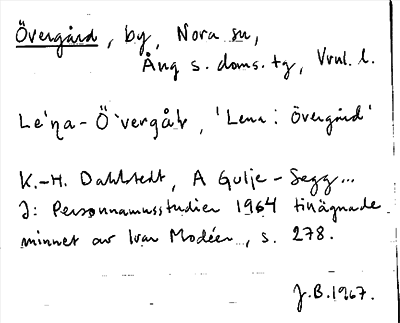 Övergård, by, Nora sn,
Ång s. doms. tg, Vvnl. l.
Le'ŋa-Ö`vergål, 'Lena i Övergård'
K.-H. Dahlstedt, A Gulje-Segg...
I: Personnamnsstudier 1964 tillägnade
minnet av Ivar Modéer, s. 278.
J.B.1967.